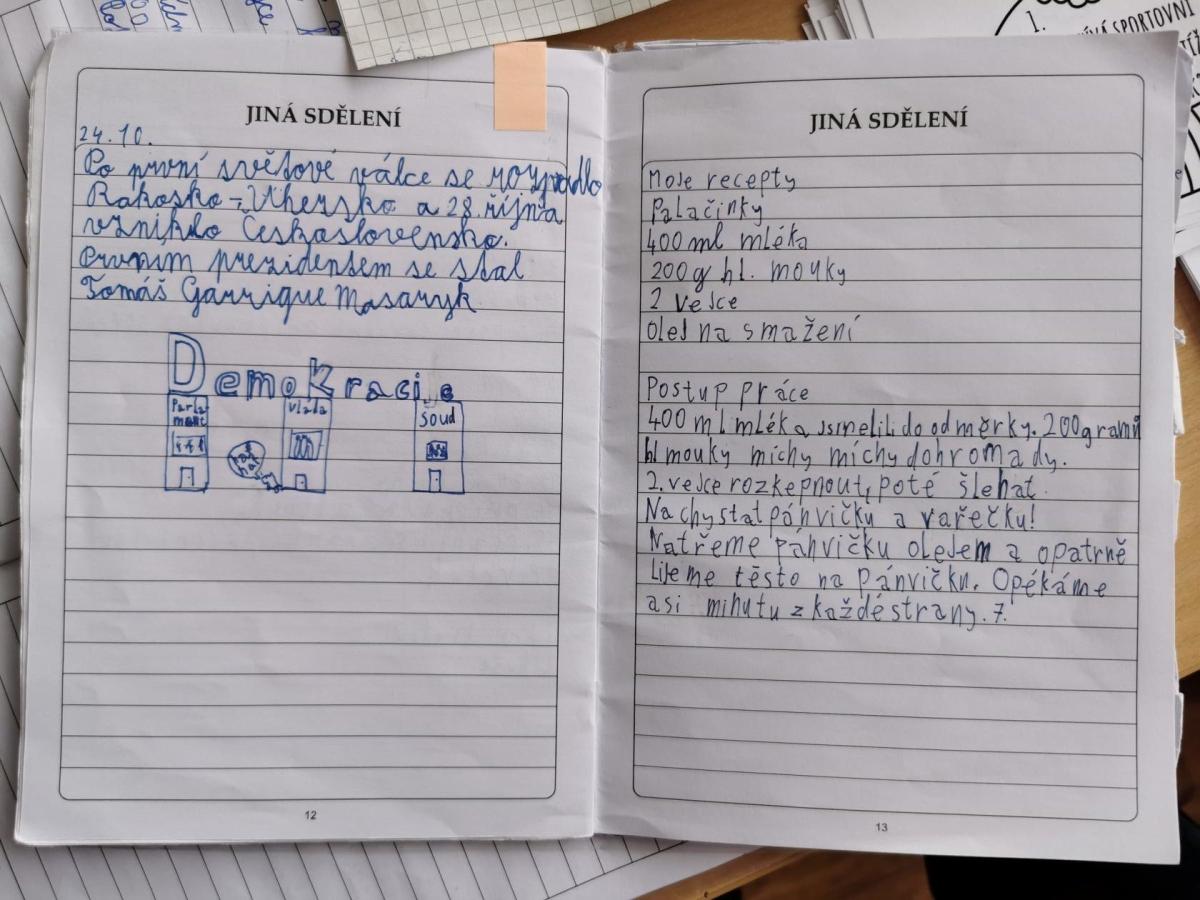 JINÁ SDĚLENÍ
24.10.
Po první světové válce se rozpadlo
Rakosko-Uhersko a 28. října
vzniklo Československo.
Prvním prezidentem se stal
Tomáš Garrigue Masaryk.
Demokracie
Parla
ment
vláda
soud
12
JINÁ SDĚLENÍ
Moje recepty
Palačinky
400 ml mléka
200g hl. mouky
2 vejce
olej na smažení
Postup práce
400 ml mléka do odměrky. 200gramů
hl mouky míchy míchy dohromady.
2. vejce rozkepnout, poté šlehat.
Nachystat pánvičku a vařečku!
Natřeme pánvičku olejem a opatrně
lijeme těsto na pánvičku. Opékáme
asi minutu z každé strany. 7.
13
1.
SPORTOVNÍ